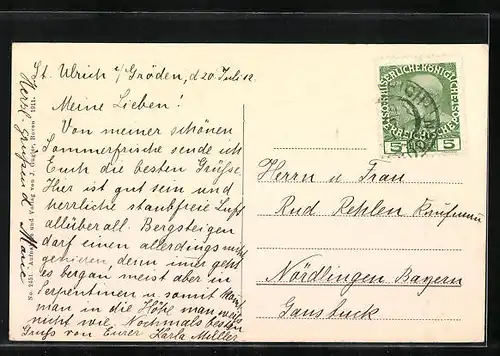 St. Ulrich i/Gröden, d 20 Juli 12.
Meine Lieben!
Von meiner schönen
Sommerfrische sende ich
Euch die besten Grüsse.
Hier ist gut sein und
herrliche staubfreie Luft
allüberall. Bergsteigen
darf einen allerdings nicht
genieren, denn immer geht
es bergan meist aber in
Serpentinen u somit kommt
man in die Höhe man weiss
nicht wie. Nochmals besten
Gruss von Eurer Karla Miller
Herzl. Marie
No. 2251. Aufnahme und Verlag von J. Gugler, Bozen 1911.
KAISERLICHE KÖNIGLICHE
ÖSTERREICHISCHE POST
5 5
Herrn u Frau
Rud Rehlen Kaufmann
Nördlingen Bayern